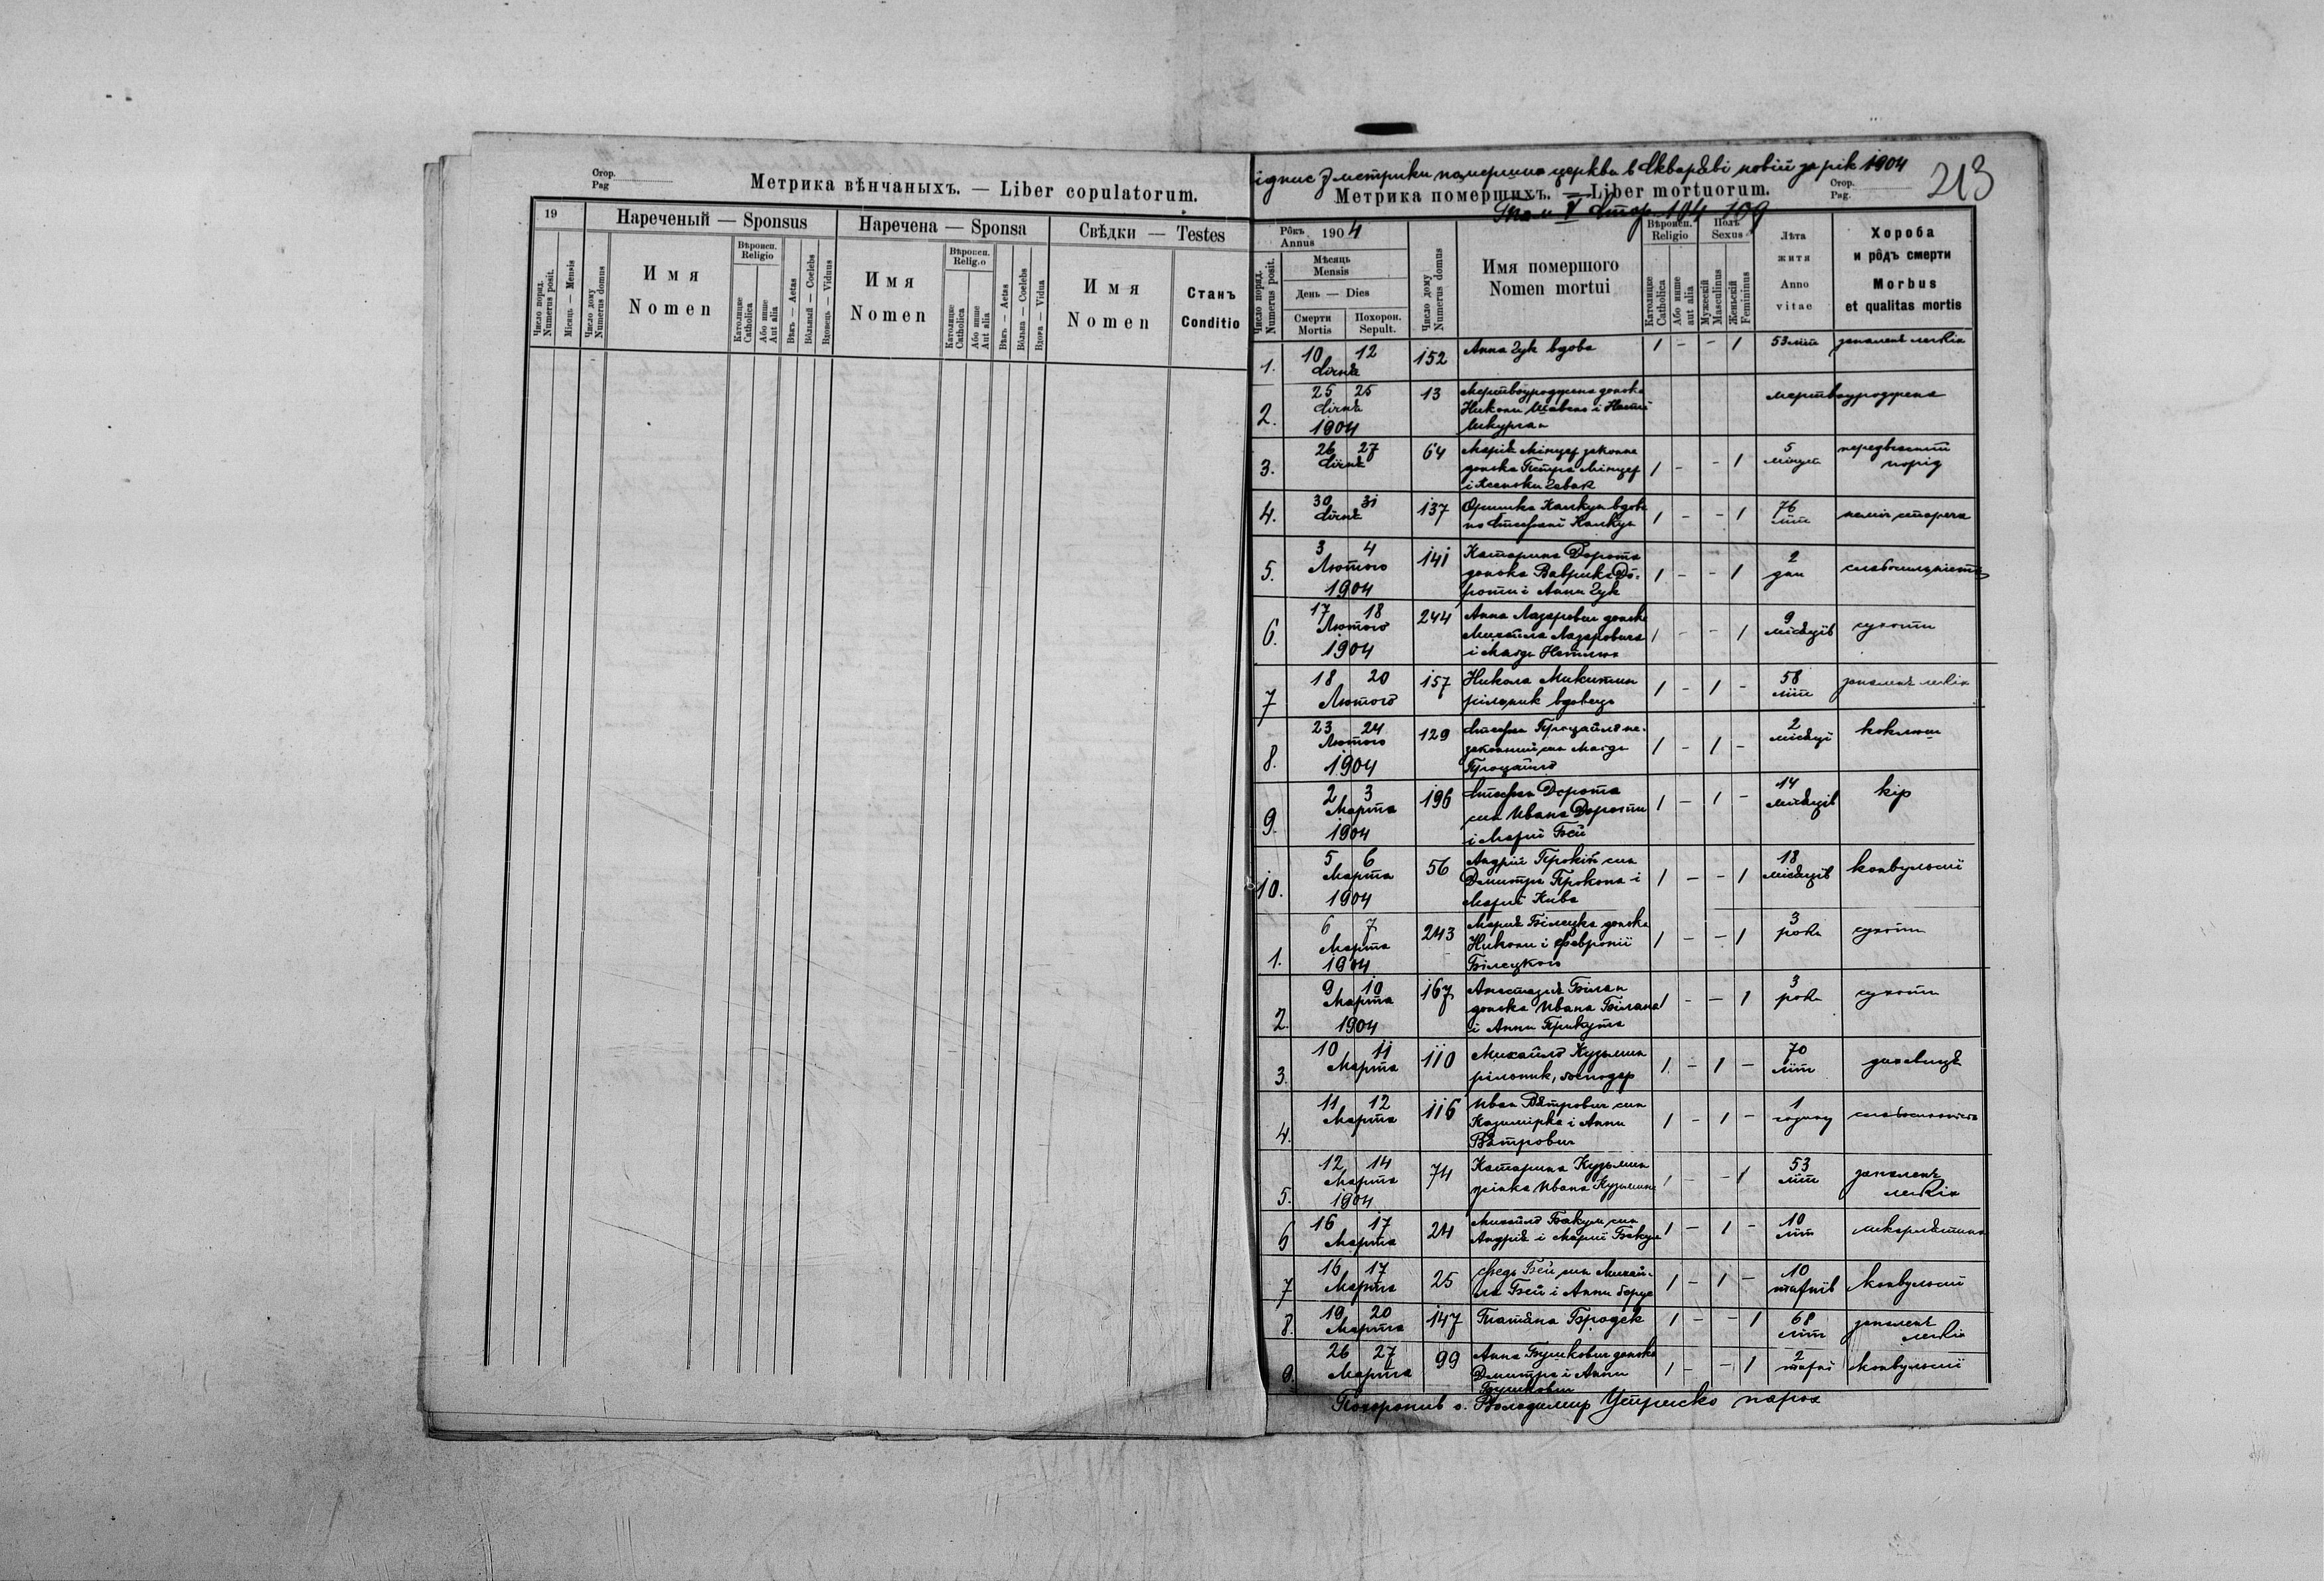 Стор.
Pag
Метрика вѣнчаныхъ. — Liber copulatorum.
19
Нареченый — Sponsus
Наречена — Sponsa
Свѣдки — Testes
Число поряд.
Numerus posit.
Місяць — Mensis
Число дому
Numerus domus
Имя
Nomen
Вѣроисп.
Religio
Католицке
Catholica
Або инше
Aut alia
Вѣкъ — Aetas
Вôльный — Coelebs
Вдовець — Viduus
Имя
Nomen
Вѣроисп.
Religio
Католицке
Catholica
Або инше
Aut alia
Вѣкъ — Aetas
Вôльна — Coelebs
Вдова — Vidua
Имя
Nomen
Станъ
Conditio
ідпис з метрики померших церкви в Скваряві новій за рік 1904
213
Метрика помершихъ. — Liber mortuorum.
Стор.
Pag.
Том V Стор. 104 109
Рôкъ 1904
Annus
Число поряд.
Numerus posit.
Мѣсяць
Mensis
День — Dies
Смерти
Mortis
Похорон.
Sepult.
Число дому
Numerus domus
Имя помершого
Nomen mortui
Вѣроисп.
Religio
Католицке
Catholica
Або инше
aut alia
Полъ
Sexus
Мужескій
Masculinus
Женьскій
Femininus
Лѣта
житя
Anno
vitae
Хороба
и рôдъ смерти
Morbus
et qualitas mortis
1. 10 12 Січня 152 Анна Гук вдова 1 - - 1 53 літ запаленє легких
2. 25 25 Січня 1904 13 Мертвоуроджена донька
Николи і Насті
мертвоуроджена
3. 26 27 Січня 64 Марія Мінцьо законна
донька Петра Мінцьо
1 - - 1 5 мінут передвчасний
порід
4. 30 31 Січня 137 вдова
по Стефані
1 - - 1 76 літ неміч старечa
5. 3 4 Лютого 1904 141 Катарина Дорота
донька Гаврила До-
роти і Анни Гук
1 - - 1 2 дни
6. 17 18 Лютого 1904 244 Анна Лазарович донька
Михайла Лазаровича
і Магди
1 - - 1 9 місяців сухоти
7 18 20 Лютого 157 Никола Микитин
рільник вдовець
1 - 1 - 58 літ запаленє легких
8. 23 24 Лютого 1904 129 Стефан Процайло не-
законний син Магди
Процайло
1 - 1 - 2 місяці коклюш
9. 2 3 Марта 1904 196 Стефан Дорота
син Ивана Дороти
і Марії Бей
1 - 1 - 14 місяців кір
10. 5 6 Марта 1904 56 Андрій Прокіп син
Дмитра Прокопа і
Марії Кива
1 - - 1 18 місяців конвульсиї
1. 6 7 Марта 1904 243 Марія Білецка донька
Николи і Февронії
Білецкого
1 - - 1 3 роки сухоти
2. 9 10 Марта 1904 167 Анастазия Білан
донька Ивана Білана
і Анни
1 - - 1 3 роки сухоти
3. 10 11 Марта 110 Михайло Кузьмин
рільник, господар
1 - 1 - 70 літ дихавиця
4. 11 12 Марта 116 Иван Вітрович син
Казимірка і Анни
Вітрович
1 - 1 - 1 годину
5. 12 14 Марта 1904 74 Катарина Кузьмин
жінка Ивана Кузьмина
1 - - 1 53 літ запаленє
легких
6 16 17 Марта 24 Михайло Бакум син
Андрія і Марії Бакум
1 - 1 - 10 літ шкарлятина
7 16 17 Марта 25 Федь Бей син Михай-
ла Бей і Анни
1 - 1 - 10 тиднів конвульсиї
8. 19 20 Марта 147 Татяна Бродек 1 - - 1 68 літ запаленє
легких
9. 26 27 Марта 99 Анна Бушкович донька
Дмитра і Анни
Бушкович
1 - - 1 2 тиджні конвульсиї
Похоронив о. Володимир Устриско парох